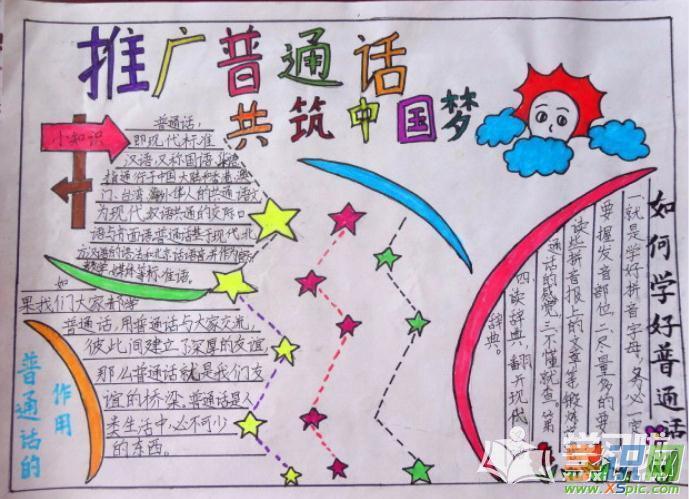 推广普通话
共筑中国梦
小知识
普通话,
即现代标准
汉语,又称国语,
通行于中国大陆和香港,澳
门、台湾,海外华人的共通语文
为现代汉语共通的交际口
语与书面语普通话基于现代北
方汉语的语法和北京话语音
媒体等标准语。
如
果我们大家都学
普通话,用普通话与大家交流,
彼此间建立了深厚的友谊
那么普通话就是我们友
谊的桥梁、普通话是人
类生活中必不可少
的东西。
普通话的
作用
如何学好普通话
一就是学好拼音字母,务必一定
要握发音部位二、尽量多的要
读些拼音报上的文章
通话的感觉三不懂就查。第
四读辞典,翻开现代
辞典。
学识网
www.XSpic.com